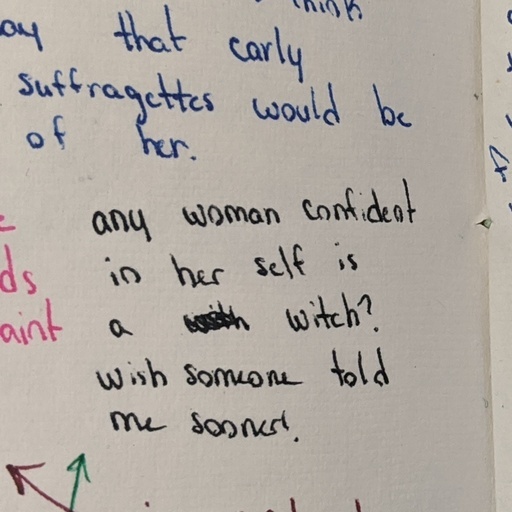 think
that early
suffragettes would be
of her.
any woman confident
in her self is
a witch?
wish someone told
me sooner!
ds
aint